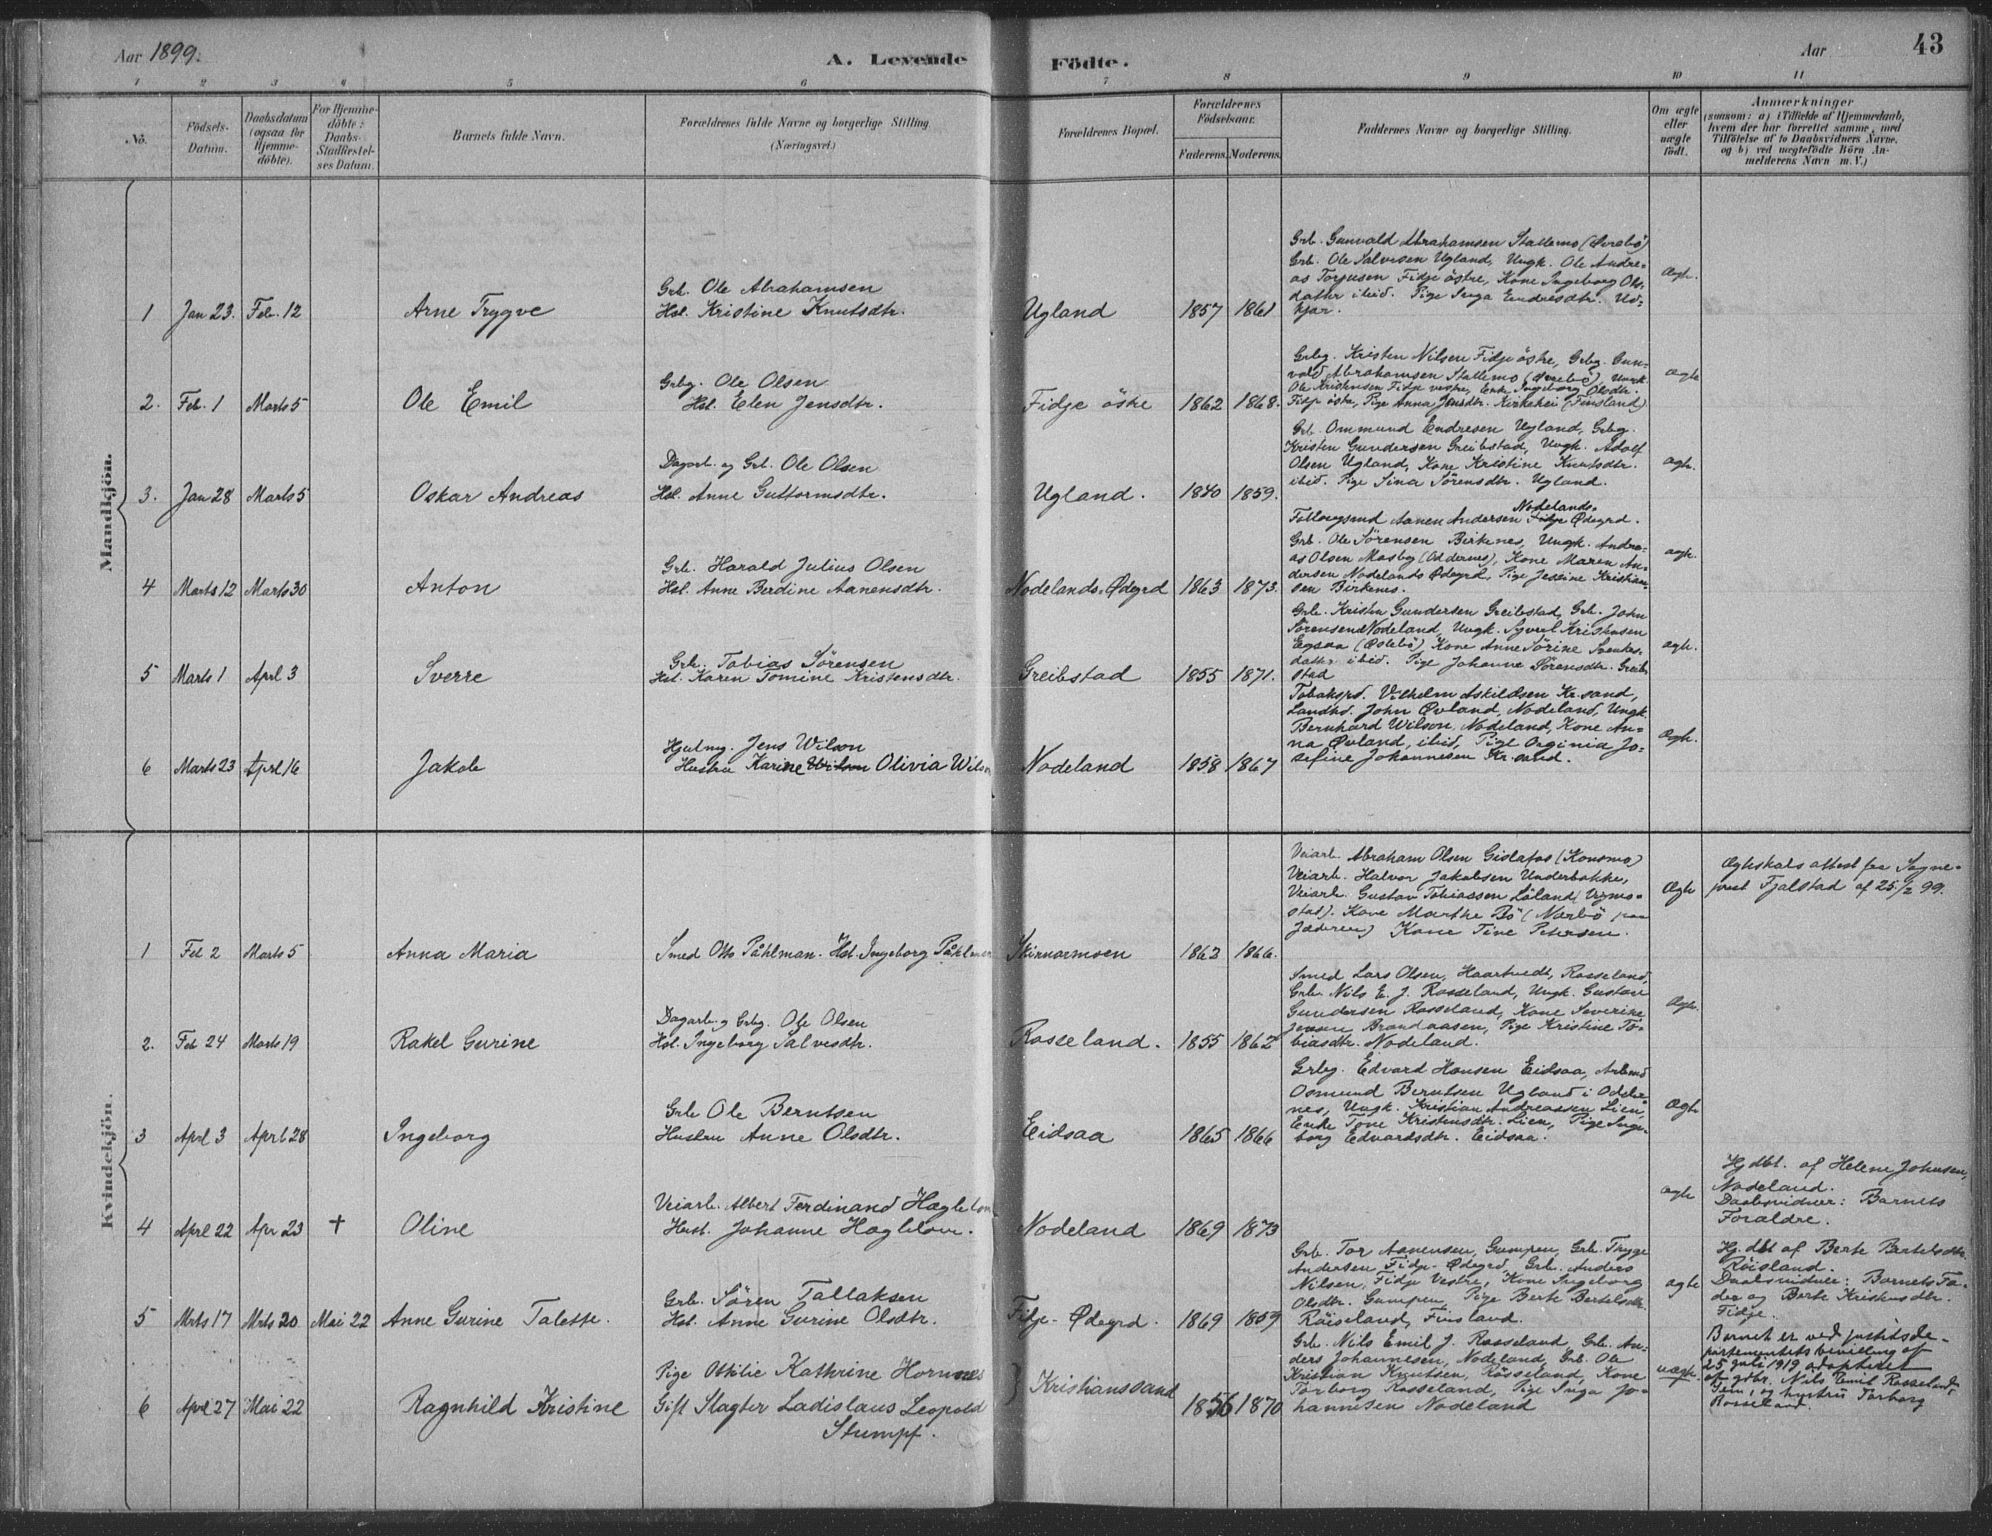 Aar 1899.
A. Levende Födte.
Aar
43
1 2 3 4 5 6 7 8 9 10 11
No.
Födsels-
Datum.
Daabsdatum
(ogsaa for
Hjemme-
döbte).
For Hjemme-
döbte:
Daabs-
Stadfæstel-
ses Datum.
Barnets fulde Navn.
Forældrenes fulde Navne og borgerlige Stilling.
(Næringsvei.)
Forældrenes Bopæl.
Forældrenes
Födselsaar.
Faderens. Moderens.
Faddernes Navne og borgerlige Stilling.
Om ægte
eller
uægte
födt.
Anmærkninger
(saasom: a) i Tilfælde af Hjemmedaab,
hvem der har forrettet samme, med
Tilföielse af to Daabsvidners Navne,
og b) ved uægtefödte Börn An-
melderens Navn m. V.)
Mandkjön.
1 Jan 23. Feb. 12 Arne Trygve
Grb. Ole Abrahamsen
Hst. Kristine Knutsdtr.
Ugland 1857 1861
Grb. Gunvald Abrahamsen Stallemo (Øvrebö)
Grb. Ole Salvesen Ugland, Ungk. Ole Andre-
as Torjusen Fidje östre, Kone Ingeborg Ols-
datter ibid. Pige Inga Endresdtr. Ud-
kjær.
Ægte.
2. Feb. 1 Marts 5 Ole Emil
Grbg. Ole Olsen
Hst. Elen Jensdtr.
Fidje östre 1862 1868.
Grbg. Kristen Nilsen Fidje östre, Grbg. Gun-
vald Abrahamsen Stallemo (Øvrebö) Ungk.
Ole Kristensen Fidje vestre, Enke Ingeborg Olsdtr.
Fidje östre, Pige Anna Jensdtr. Kirkehei (Finsland)
ægte
3. Jan 28 Marts 5 Oskar Andreas
Dagarb. og Grb. Ole Olsen
Hst. Anne Guttormsdtr.
Ugland. 1840 1859.
Grb. Ommund Endresen Ugland, Grbg.
Kristen Gundersen Greibstad, Ungk. Adolf
Olsen Ugland, Kone Kristine Knutsdtr.
ibid. Pige Sina Sörensdtr. Ugland.
ægte.
4 Marts 12 Marts 30 Anton
Grb. Harald Julius Olsen
Hst. Anne Berdine Aanensdtr.
Nodelands-Ødegrd 1863 1873.
Nodelands-
Aanen Andersen Fidje Ødegrd.
Grb. Ole Sörensen Birkenes, Ungk. Andre-
as Olsen Mosby (Oddernes), Kone Maren An-
dersen Nodelands Ødegrd, Pige Jessine Kristian-
sen Birkenes.
ægte.
5 Marts 1 Aprl 3 Sverre
Grb. Tobias Sörensen
Hst. Karen Tomine Kristensdtr.
Greibstad 1855 1871.
Grb. Kristen Gundersen Greibstad, Grb. John
Sörensen Nodeland, Ungk. Syvert Kristensen
Egsaa (Öslebö) Kone Anne Sörine Svenkes-
datter ibid. Pige Johanne Sörensdtr. Greib-
stad
ægte.
6 Marts 23 Aprl 16 Jakob
Hjulmg. Jens Wilson
Hustru Karine Wilson Olivia Wilson
Nodeland 1858 1867
Vilhelm Askildsen Kr.sand,
Landhd. John Øvland, Nodeland, Ungk.
Bernhard Wilson, Nodeland, Kone An-
na Øvland, ibid, Pige Orginia Jo-
sefine Johannesen Kr.sand.
Ægte.
Kvindekjön.
1 Feb 2 Marts 5 Anna Maria
Smed Otto Påhlman. Hst. Ingeborg Påhlman
Skinnarmoen 1862 1866.
Veiarb. Abraham Olsen Gislefos (Konsmo)
Veiarb. Halvor Jakobsen Underbakke,
Veiarb. Gustav Tobiassen Löland (Vigmo-
stad). Kone Marthe Bö (Nærbö paa
Jæderen) Kone Tine Petersen.
Ægte
Ægteskabsattest fra Sogne-
prest Fjalstad af 25/2 99.
2. Feb 24 Marts 19 Rakel Gurine
Dagarb. og Grbg. Ole Olsen
Hst. Ingeborg Salvesdtr.
Rosseland. 1855 1862
Smed Lars Olsen, Haartvedt, Rosseland,
Grb. Nils E. J. Rosseland, Ungk. Gustav
Gundersen Rosseland, Kone Severine
Jensen Brandaasen, Pige Kristine To-
biasdtr. Nodeland.
Ægte.
3 Aprl 3 Aprl 28 Ingeborg
Grb Ole Berntsen
Hustru Anne Olsdtr.
Eidsaa 1865 1866
Grbg. Edvard Hansen Eidsaa, Arbmd
Osmund Berntsen Ugland i Odder-
nes, Ungk. Kristian Andreassen Lien,
Enke Tone Kristensdtr. Lien, Pige Inge-
borg Edvardsdtr. Eidsaa.
Ægte
4 Aprl 22 Apr 23 + Oline
Veiarb. Albert Ferdinand Hagleton
Hust. Johanne
Nodeland 1869 1873
ægte
Hj.dbt. af Helene Johnsen,
Nodeland.
Daabsvidner: Barnets
Forældre.
5 Mrts 17 Mrts 20 Mai 22 Anne Gurine Talette.
Grb. Sören Tallaksen
Hst. Anne Gurine Olsdtr.
Fidje-Ødegrd. 1869 1859
Grb. Tor Aanensen, Gumpen, Grb. Tryge
Andersen Fidje-Ødegrd, Grb. Anders
Nilsen, Fidje Vestre, Kone Ingeborg
Olsdtr. Gumpen, Pige Berte Bertelsdtr.
Röiseland, Finsland.
ægte
Hj.dbt af Berte Bertelsdtr.
Röisland.
Daabsvidner: Barnets Fa-
der og Berte Kristensdtr.
Fidje.
6 Aprl 27 Mai 22 Ragnhild Kristine
Pige Ottilie Kathrine Hornnes
Gift Slagter Ladislaus Leopold
Stumpf.
Kristianssand
1856 1870
Grb. Nils Emil J. Rosseland, Grb. An-
ders Johannesen, Nodeland, Grb. Ole
Kristian Knutsen, Rosseland, Kone
Torborg Rosseland, Pige Inga Jo-
hannesen Nodeland
uægte.
Barnet er ved Justitsde-
partementets bevilling af
25 juli 1919 adopteret
af gdbr. Nils Emil Rosseland,
Jem, og hustru Torborg
Rosseland.